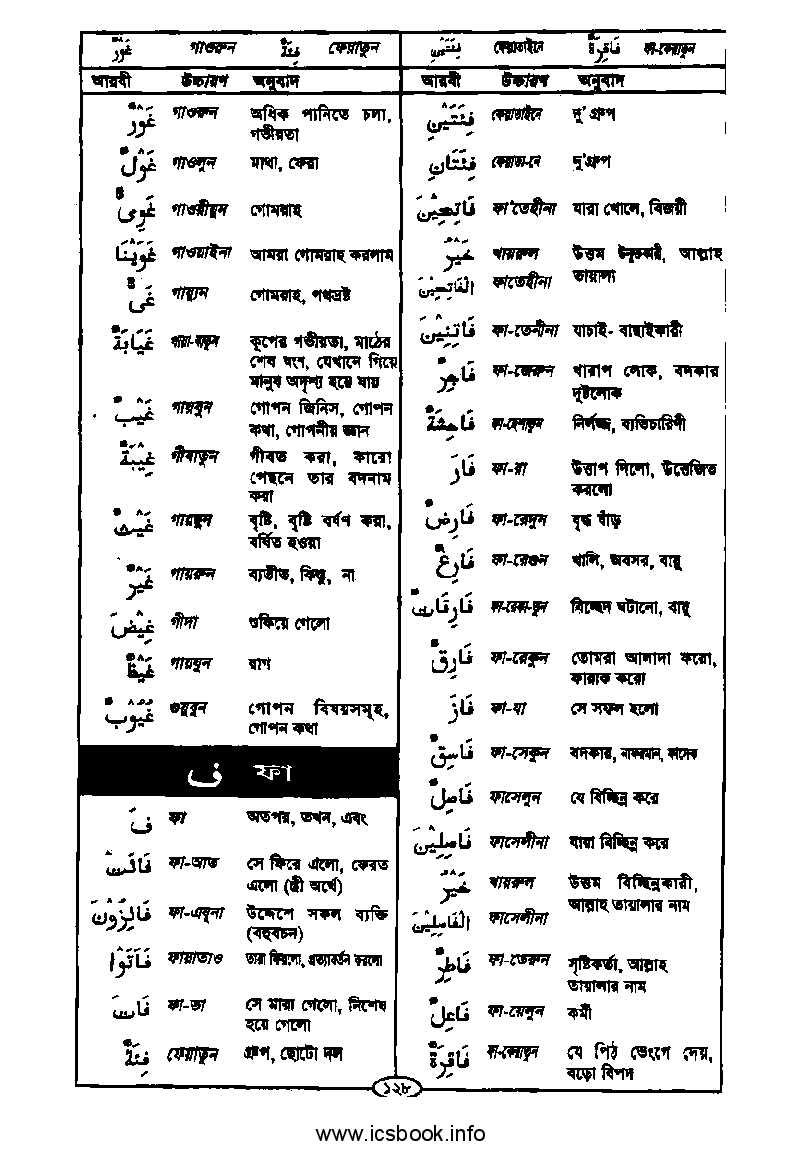 غَوْرٌ গাওরুন فِئَةٌ ফেয়াতুন
আরবী উচ্চারণ অনুবাদ
غَوْرٌ গাওরুন অধিক পানিতে চলা,
গভীরতা
غَوْلٌ গাওলুন মাথা, ফেরা
غَوِىٌّ গাওয়ীয়ুন গোমরাহ
غَوَيْنَا গাওয়াইনা আমরা গোমরাহ করলাম
غَىٌّ গায়্যুন গোমরাহ, পথভ্রষ্ট
غَيَابَةٌ গায়া-বাতুন কূপের গভীরতা, মাঠের
শেষ অংশ, যেখানে গিয়ে
মানুষ অদৃশ্য হয়ে যায়
غَيْبٌ গায়বুন গোপন জিনিস, গোপন
কথা, গোপনীয় জ্ঞান
غِيْبَةٌ গীবাতুন গীবত করা, কারো
পেছনে তার বদনাম
করা
غَيْثٌ গায়ছুন বৃষ্টি, বৃষ্টি বর্ষণ করা,
বর্ষিত হওয়া
غَيْرٌ গায়রুন ব্যতীত, কিন্তু, না
غِيْضَ গীদা শুকিয়ে গেলো
غَيْظٌ গায়যুন রাগ
غُيُوْبٌ গুয়ুবুন গোপন বিষয়সমূহ,
গোপন কথা
ف ফা
فَ ফা অতপর, তখন, এবং
فَائَتْ ফা-আত সে ফিরে এলো, ফেরত
এলো (স্ত্রী অর্থে)
فَائِزُوْنَ ফা-এযুনা উদ্দেশে সফল ব্যক্তি
(বহুবচন)
فَاَتَوْا ফায়াতাও তারা ফিরলো, প্রত্যাবর্তন করলো
فَاتَ ফা-তা সে মারা গেলো, নিশেষ
হয়ে গেলো
فِئَةٌ ফেয়াতুন গ্রুপ, ছোটো দল
فِئَتَيْنِ ফেয়াতাইনে فَاقِرَةٌ ফা-কেরাতুন
আরবী উচ্চারণ অনুবাদ
فِئَتَيْنِ ফেয়াতাইনে দু'গ্রুপ
فِئَتَانِ ফেয়াতা-নে দু'গ্রুপ
فَاتِحِيْنَ ফা'তেহীনা যারা খোলে, বিজয়ী
خَيْرُ খায়রুল উত্তম উন্মুক্তকারী, আল্লাহ
الْفَاتِحِيْنَ ফাতেহীনা তায়ালা
فَاتِنِيْنَ ফা-তেনীনা যাচাই- বাছাইকারী
فَاجِرٌ ফা-জেরুন খারাপ লোক, বদকার
দুষ্টলোক
فَاحِشَةٌ ফা-হেশাতুন নির্লজ্জ, ব্যভিচারিণী
فَارَ ফা-রা উত্তাপ দিলো, উত্তেজিত
করলো
فَارِضٌ ফা-রেদুন বৃদ্ধ ষাঁড়
فَارِغٌ ফা-রেগুন খালি, অবসর, বায়ু
فَارِقَاتٌ ফা-রেকা-তুন বিচ্ছেদ ঘটানো, বায়ু
فَارِقٌ ফা-রেকুন তোমরা আলাদা করো,
ফারাক করো
فَازَ ফা-যা সে সফল হলো
فَاسِقٌ ফা-সেকুন বদকার, নাফরমান, ফাসেক
فَاصِلٌ ফাসেলুন যে বিচ্ছিন্ন করে
فَاصِلِيْنَ ফাসেলীনা যারা বিচ্ছিন্ন করে
خَيْرُ খায়রুল উত্তম বিচ্ছিন্নকারী,
الْفَاصِلِيْنَ ফাসেলীনা আল্লাহ তায়ালার নাম
فَاطِرٌ ফা-তেরুন সৃষ্টিকর্তা, আল্লাহ
তায়ালার নাম
فَاعِلٌ ফা-য়েলুন কর্মী
فَاقِرَةٌ ফা-কেরাতুন যে পিঠ ভেংগে দেয়,
বড়ো বিপদ
১২৮
www.icsbook.info